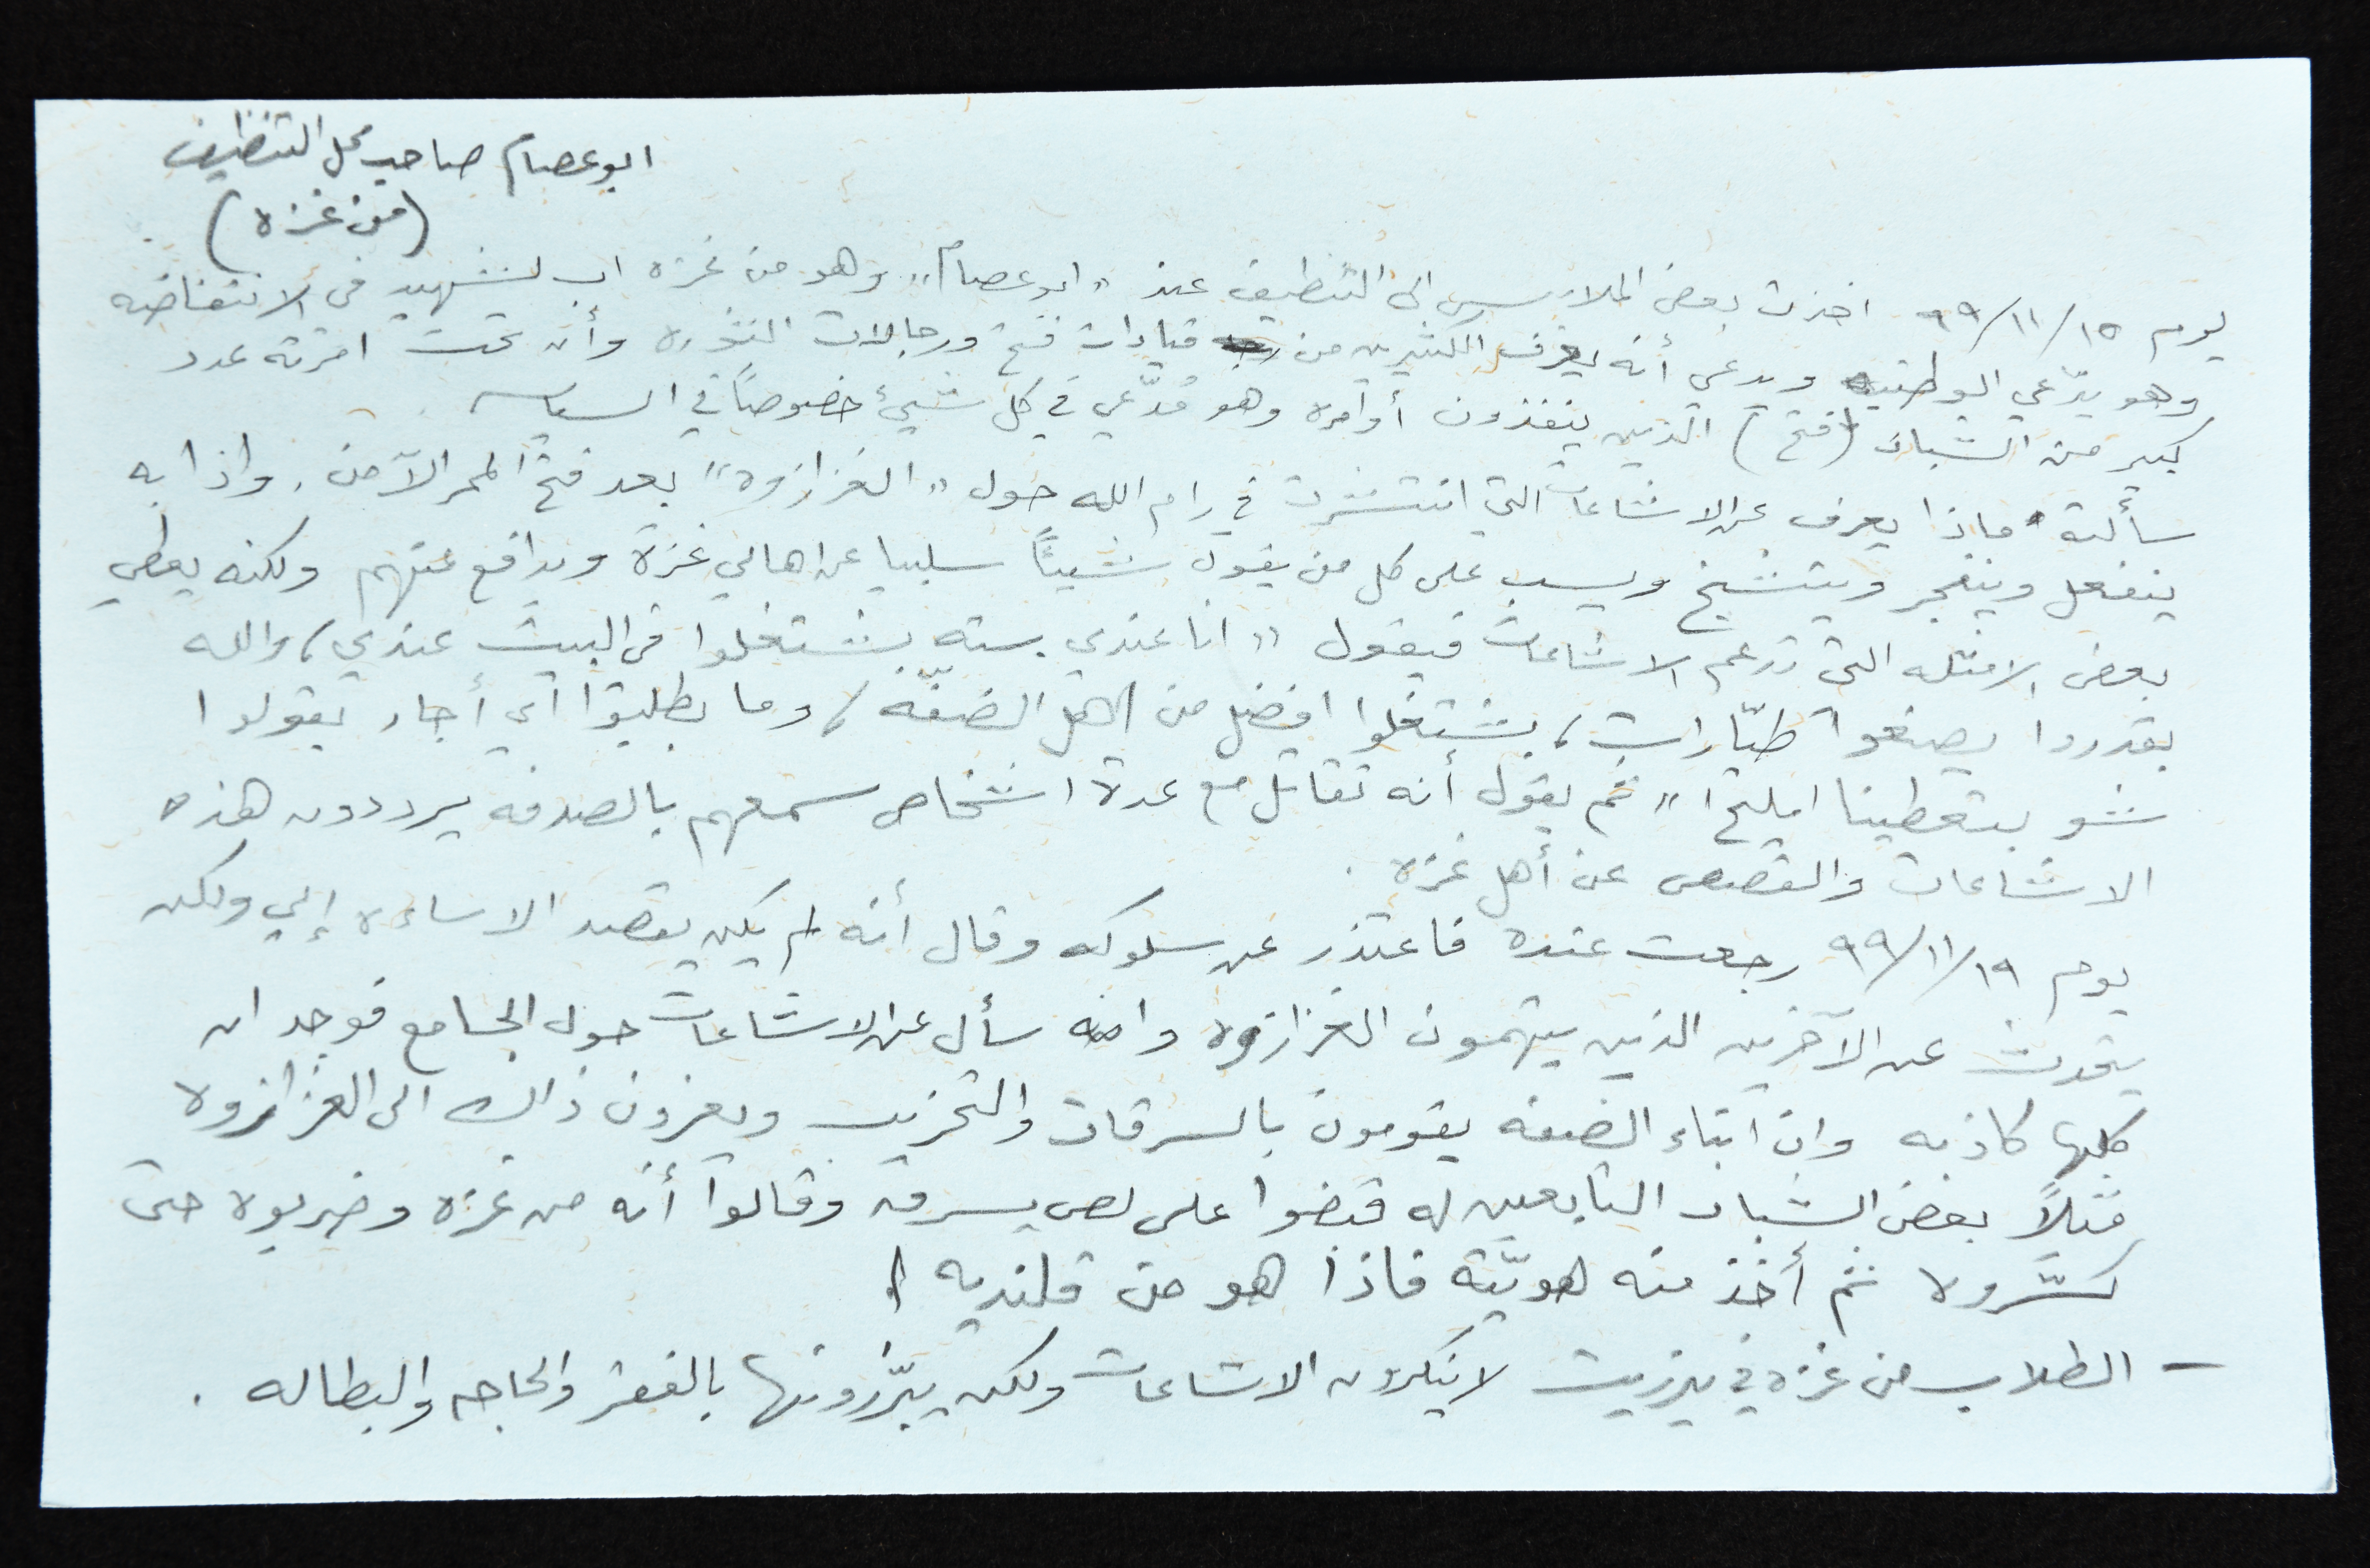 ابو عصام صاحب محل التنظيف
(من غزه)
يوم ١٥/١١/٩٩ اخذت بعض الملابس الى التنظيف عند "ابو عصام" وهو من غزه اب لشهيد في الانتفاضه
وهو يدّعي الوطنيه ويدعي أنه يعرف الكثيرين من قيادات فتح ورجالات الثوره وأن تحت امرته عدد
كبير من الشباب (فتح) الذين ينفذون أوامره وهو مدّعي في كل شيئ خصوصاً في السياسه.
سألته ماذا يعرف عن الاشاعات التي انتشرت في رام الله حول "الغزازوه" بعد فتح الممر الآمن. واذا به
ينفعل وينفجر ويتشنج ويسب على كل من يقول شيئاً سلبيا عن اهالي غزة ويدافع عنهم ولكنه يعطي
بعض الامثله التي تدعم الاشاعات فيقول "انا عندي سته بشتغلوا في البيت عندي، والله
بقدروا يصنعوا طيّارات، بشتغلوا افضل من اهل الضفّه، وما بطلبوا أي أجار بقولوا
شو بتعطينا امليح" ثم يقول أنه تقاتل مع عدة اشخاص سمعهم بالصدفه يرددون هذه
الاشاعات والقصص عن أهل غزه.
يوم ١٩/١١/٩٩ رجعت عنده فاعتذر عن سلوكه وقال أنه لم يكن يقصد الاساءه إلي ولكن
يتحدث عن الآخرين الذين يتهمون الغزازوه وانه سأل عن الاشاعات حول الجامع فوجد ان
كلها كاذبه وان ابناء الضفه يقومون بالسرقات والتخريب ويعزون ذلك الى الغزازوه
مثلاً بعض الشباب التابعين له قبضوا على لص يسرق وقالوا أنه من غزه وضربوه حتى
كسّروه ثم أخذ منه هويّته فاذا هو من قلنديه!
– الطلاب من غزه في بيرزيت لا ينكرون الاشاعات ولكن يبرّرونها بالفقر والحاجه والبطاله.